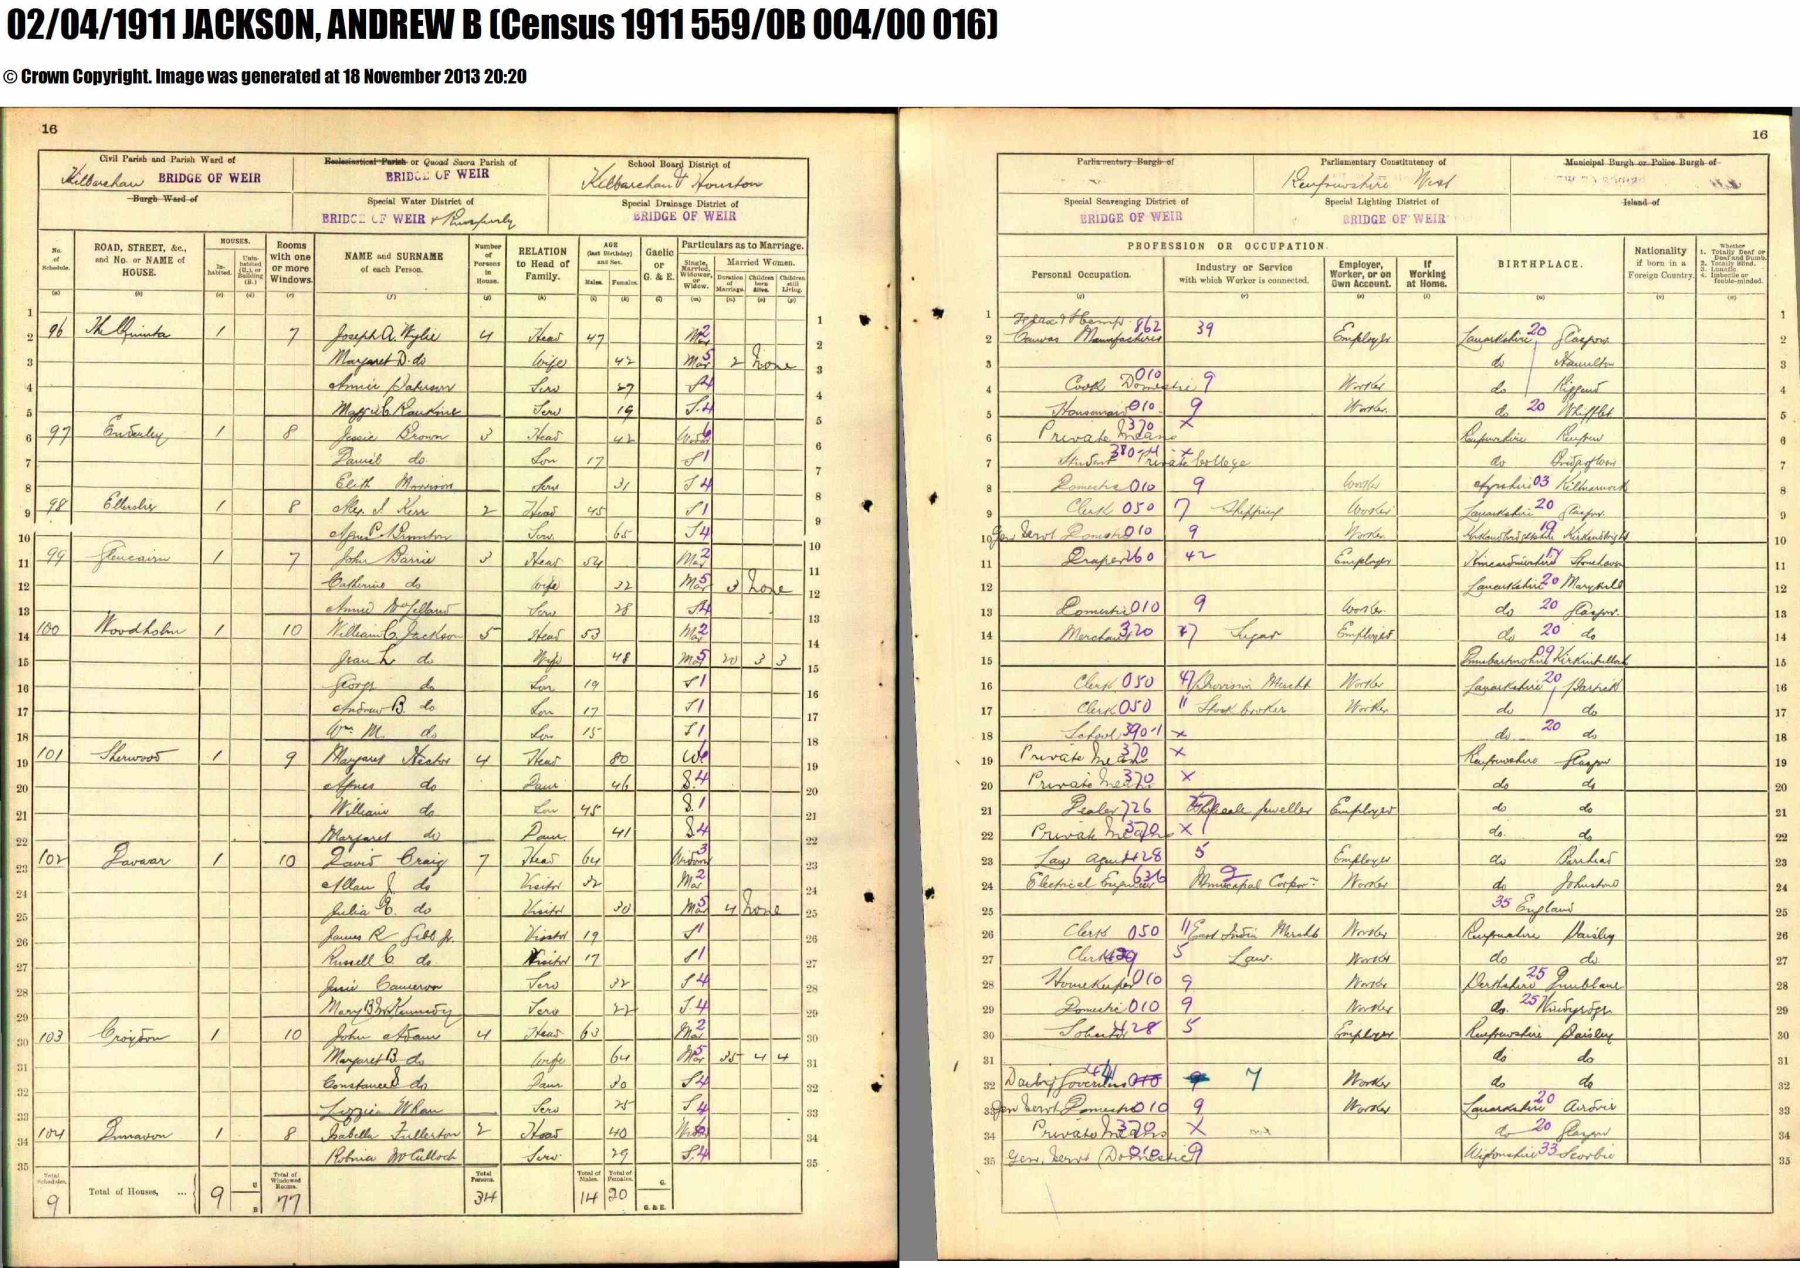 02/04/1911 JACKSON, ANDREW B (Census 1911 559/0B 004/00 016)
© Crown Copyright. Image was generated at 18 November 2013 20:20
16
Civil Parish and Parish Ward of
Kilbarchan BRIDGE OF WEIR
Burgh Ward of
Ecclesiastical Parish or Quoad Sacra Parish of
BRIDGE OF WEIR
Special Water District of
BRIDGE OF WEIR
School Board District of
Kilbarchan & Houston
Special Drainage District of
BRIDGE OF WEIR
No. of Schedule.
ROAD, STREET, &c., and No. or NAME of HOUSE.
HOUSES.
Inhabited.
Rooms with one or more Windows.
NAME and SURNAME of each Person.
Number of Persons in House.
RELATION to Head of Family.
AGE (last Birthday) and Sex.
Males. Females.
Gaelic or G. & E.
Particulars as to Marriage.
Single, Married, Widower, or Widow.
Married Women.
Duration of Marriage. Children born Alive. Children still Living.
96 1 7 Joseph A. Wylie 4 Head 47 Mar 2
Margaret D. do Wife 42 Mar 5 2 None
Annie Paterson Serv 27 S 4
Maggie C Rankine Serv 19 S 4
97 Enderley 1 8 Jessie Brown 3 Head 42 6
Daniel do Son 17 S 1
Morrison Serv 31 S 4
98 Ellerslie 1 8 Alex. Kerr 2 Head 45 S 1
Agnes Brunton Serv 65 S 4
99 Glencairn 1 7 John Barrie 3 Head 54 Mar 2
Catherine do Wife 32 Mar 5 3 None
Annie Serv 28 S 4
100 Woodholm 1 10 William C. Jackson 5 Head 53 Mar 2
Jean L do Wife 48 Mar 5 20 3 3
George do Son 19 S 1
Andrew B. do Son 17 S 1
Wm M. do Son 15 S 1
101 Sherwood 1 9 Margaret Hector 4 Head 80 6
Agnes do Daur 46 S 4
William do Son 45 S 1
Margaret do Daur 41 S 4
102 Davaar 1 10 David Craig 7 Head 64 3
Allan J do Visitor 32 Mar 2
Julia do Visitor 30 Mar 5 4 None
James R Gibb Jr. Visitor 19 S 1
Russell C do. Visitor 17 S 1
Cameron Serv 32 S 4
Mary B McKennedy Serv 22 S 4
103 Croydon 1 10 John Adam 4 Head 63 Mar 2
Margaret B do Wife 64 Mar 5 35 4 4
Constance do Daur 30 S 4
Lizzie Whan Serv 25 S 4
104 Dunavon 1 8 Isabella Fullerton 2 Head 40 6
Robina McCulloch Serv 29 S 4
Total Schedules. 9
Total of Houses, ... 9
Total of Windowed Rooms. 77
Total Persons. 34
Total of Males. 14
Total of Females. 20
G.
G. & E.
16
Parliamentary Burgh of
Special Scavenging District of
BRIDGE OF WEIR
Parliamentary Constitutency of
Renfrewshire West
Special Lighting District of
BRIDGE OF WEIR
Municipal Burgh or Police Burgh of
Island of
PROFESSION OR OCCUPATION.
Personal Occupation.
Industry or Service with which Worker is connected.
Employer, Worker, or on Own Account.
If Working at Home.
BIRTHPLACE.
Nationality if born in a Foreign Country.
Whether 1. Totally Deaf or Deaf and Dumb. 2. Totally Blind. 3. Lunatic. 4. Imbecile or feeble-minded.
1 Flax & Hemp
2 Canvas Manufacturer 862 39 Employer Lanarkshire 20 Glasgow
3 do Hamilton
4 Cook Domestic 010 9 Worker do
5 Housemaid 010 9 Worker do 20 Whifflet
6 Private Means 370 x Renfrewshire Renfrew
7 Student Private College x do Bridge of Weir
8 Domestic 010 9 Worker Ayrshire 03 Kilmarnock
9 Clerk 050 7 Shipping Worker Lanarkshire 20 Glasgow
10 Gen Servt Domestic 010 9 Worker 19 Kirkcudbright
11 Draper 260 42 Employer Kincardineshire Stonehaven
12 Lanarkshire 20 Maryhill
13 Domestic 010 9 Worker do 20 Glasgow
14 Merchant 320 47 Sugar Employer do 20 do
15 Dumbartonshire 09 Kirkintilloch
16 Clerk 050 Provision Mercht Worker Lanarkshire 20 Partick
17 Clerk 050 11 Stock broker Worker do do
18 School 390-1 x do 20 do
19 Private Means 370 x Renfrewshire Glasgow
20 Private Means 370 x do do
21 Dealer 726 Wholesale Jeweller Employer do do
22 Private Means 370 x do do
23 Law Agent 428 5 Employer do Barrhead
24 Electrical Engineer 636 2 Municipal Corporn Worker do Johnstone
25 35 England
26 Clerk 050 11 East India Mercht Worker Renfrewshire Paisley
27 Clerk 429 5 Law Worker do do
28 Homekeeper 010 9 Worker Perthshire 25 Dunblane
29 Domestic 010 9 Worker do 25
30 Solicitor 428 5 Employer Renfrewshire Paisley
31 do do
32 Daily Governess 7 Worker do do
33 Gen Servt Domestic 010 9 Worker Lanarkshire 20 Airdrie
34 Private Means 370 x do 20 Glasgow
35 Gen. Servt (Domestic) 9 Wigtonshire 33 Sorbie